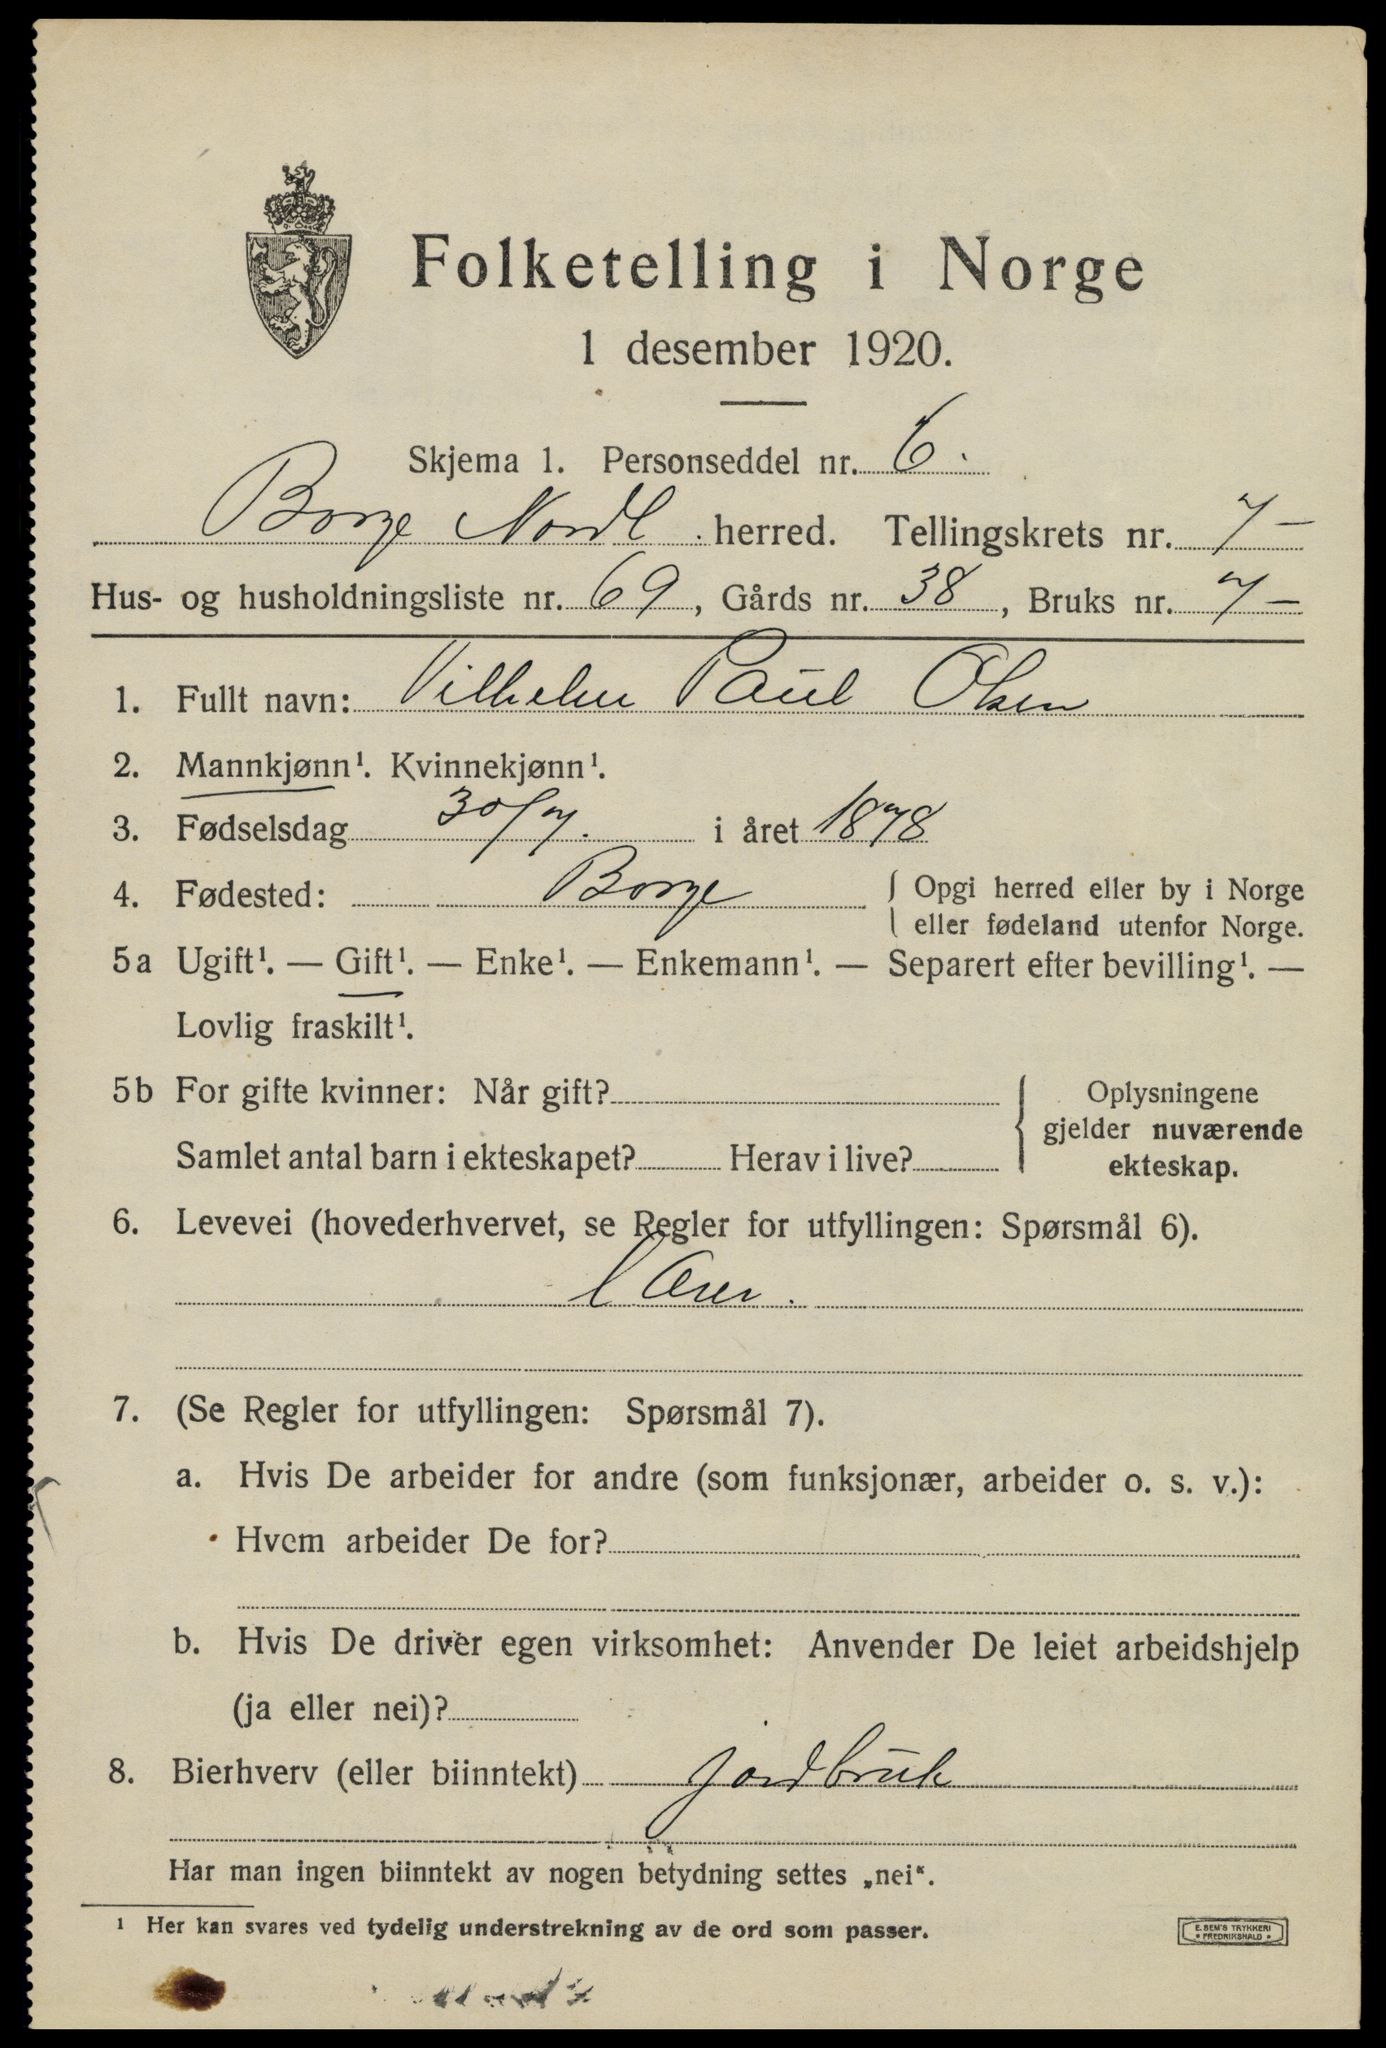 Folketelling i Norge
1 desember 1920.
Skjema 1. Personseddel nr. 6.
Borge Nordl. herred. Tellingskrets nr. 7 —
Hus- og husholdningsliste nr. 69, Gårds nr. 38, Bruks nr. 7 —
1. Fullt navn: Vilhelm Paul Olsen
2. Mannkjønn¹. Kvinnekjønn¹.
3. Fødselsdag 30/7. i året 1878
4. Fødested: Borge { Opgi herred eller by i Norge
eller fødeland utenfor Norge.
5a Ugift¹. — Gift¹. — Enke¹. — Enkemann¹. — Separert efter bevilling¹. —
Lovlig fraskilt¹.
5b For gifte kvinner: Når gift? { Oplysningene
gjelder nuværende
Samlet antal barn i ekteskapet? Herav i live? ekteskap.
6. Levevei (hovederhvervet, se Regler for utfyllingen: Spørsmål 6).
lærer.
7. (Se Regler for utfyllingen: Spørsmål 7).
a. Hvis De arbeider for andre (som funksjonær, arbeider o. s. v.):
Hvem arbeider De for?
b. Hvis De driver egen virksomhet: Anvender De leiet arbeidshjelp
(ja eller nei)?
8. Bierhverv (eller biinntekt) jordbruk
Har man ingen biinntekt av nogen betydning settes „nei“.
¹ Her kan svares ved tydelig understrekning av de ord som passer.
E. SEM'S TRYKKERI
FREDRIKSHALD